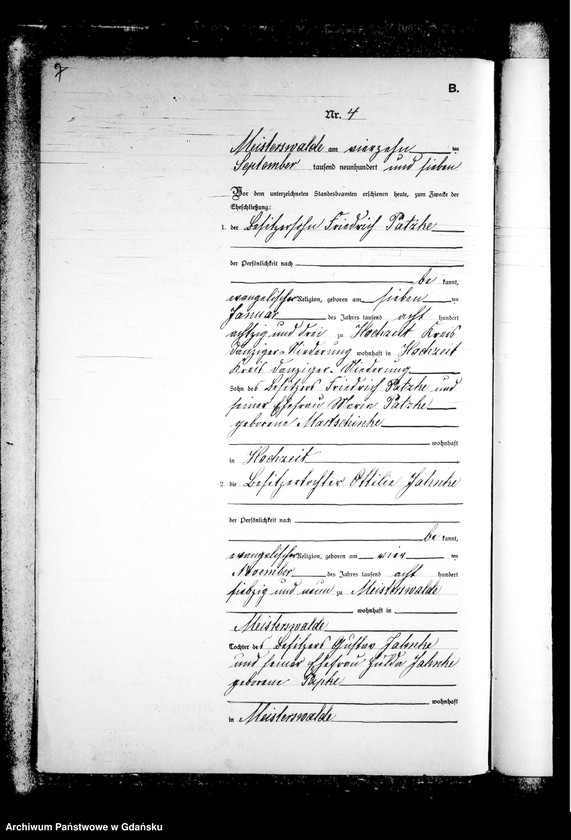 7
B.
Nr. 4
Meisterswalde am vierzehn ten
September tausend neunhundert und sieben
Vor dem unterzeichneten Standesbeamten erschienen heute, zum Zwecke der
Eheschließung:
1. der Besitzersohn Friedrich Patzke
der Persönlichkeit nach
be kannt,
evangelischer Religion, geboren am sieben ten
Januar des Jahres tausend acht hundert
achtzig und drei zu Hochzeit Kreis
Danziger-Niederung wohnhaft in Hochzeit
Kreis Danziger-Niederung
Sohn des Besitzers Friedrich Patzke und
seiner Ehefrau Maria Patzke
geborene Martschinke
wohnhaft
in Hochzeit
2. die Besitzertochter Ottilie Jahnke
der Persönlichkeit nach
be kannt,
evangelischer Religion, geboren am vier ten
November des Jahres tausend acht hundert
siebzig und neun zu Meisterswalde
wohnhaft in
Meisterswalde
Tochter des Besitzers Gustav Jahnke
und seiner Ehefrau Hulda Jahnke
geborene Papke
wohnhaft
in Meisterswalde
Archiwum Państwowe w Gdańsku